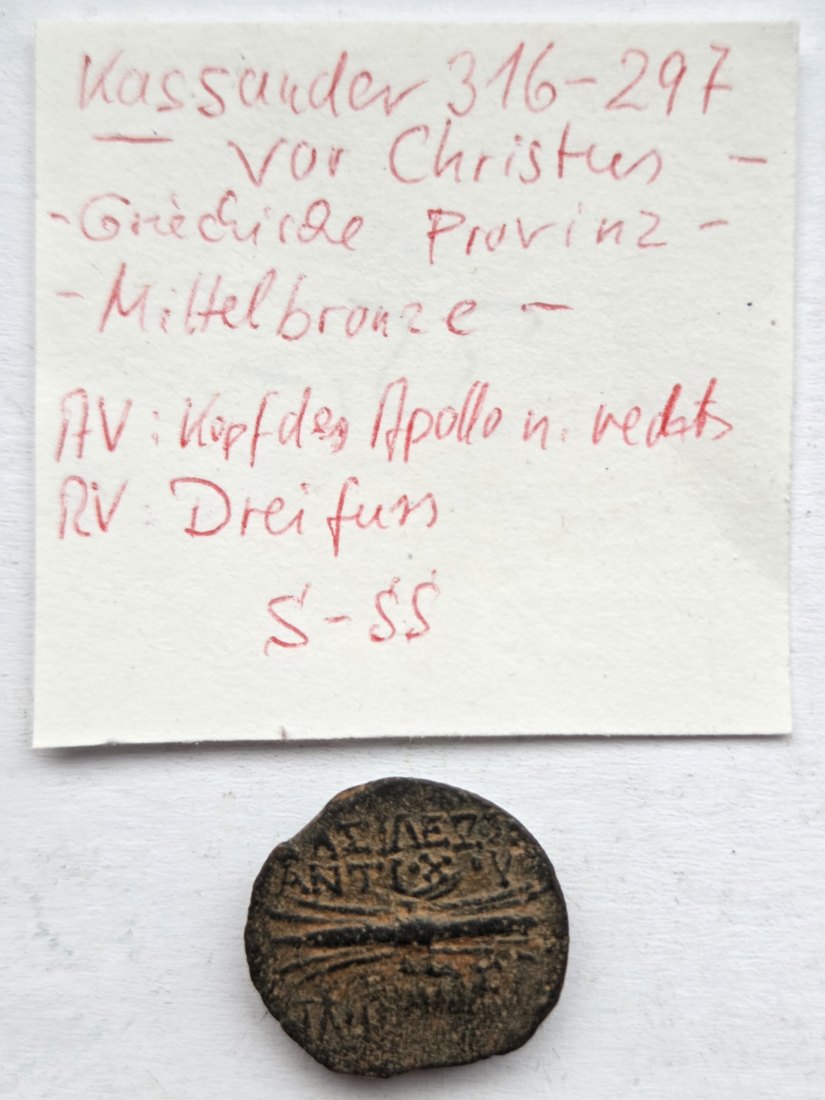 Kassander 316-297
vor Christus -
- Griechische Provinz -
- Mittelbronze -
AV: Kopf des Apollo n. rechts
RV: Dreifuss
S-SS
ΑΣΙΛΕΩΣ
ΑΝΤΙΟΧΟΥ